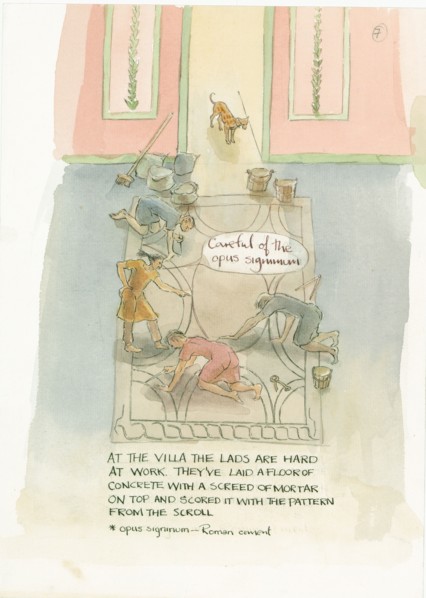 7
Careful of the
opus signinum
AT THE VILLA THE LADS ARE HARD
AT WORK. THEY'VE LAID A FLOOR OF
CONCRETE WITH A SCREED OF MORTAR
ON TOP AND SCORED IT WITH THE PATTERN
FROM THE SCROLL
* opus signinum — Roman cement